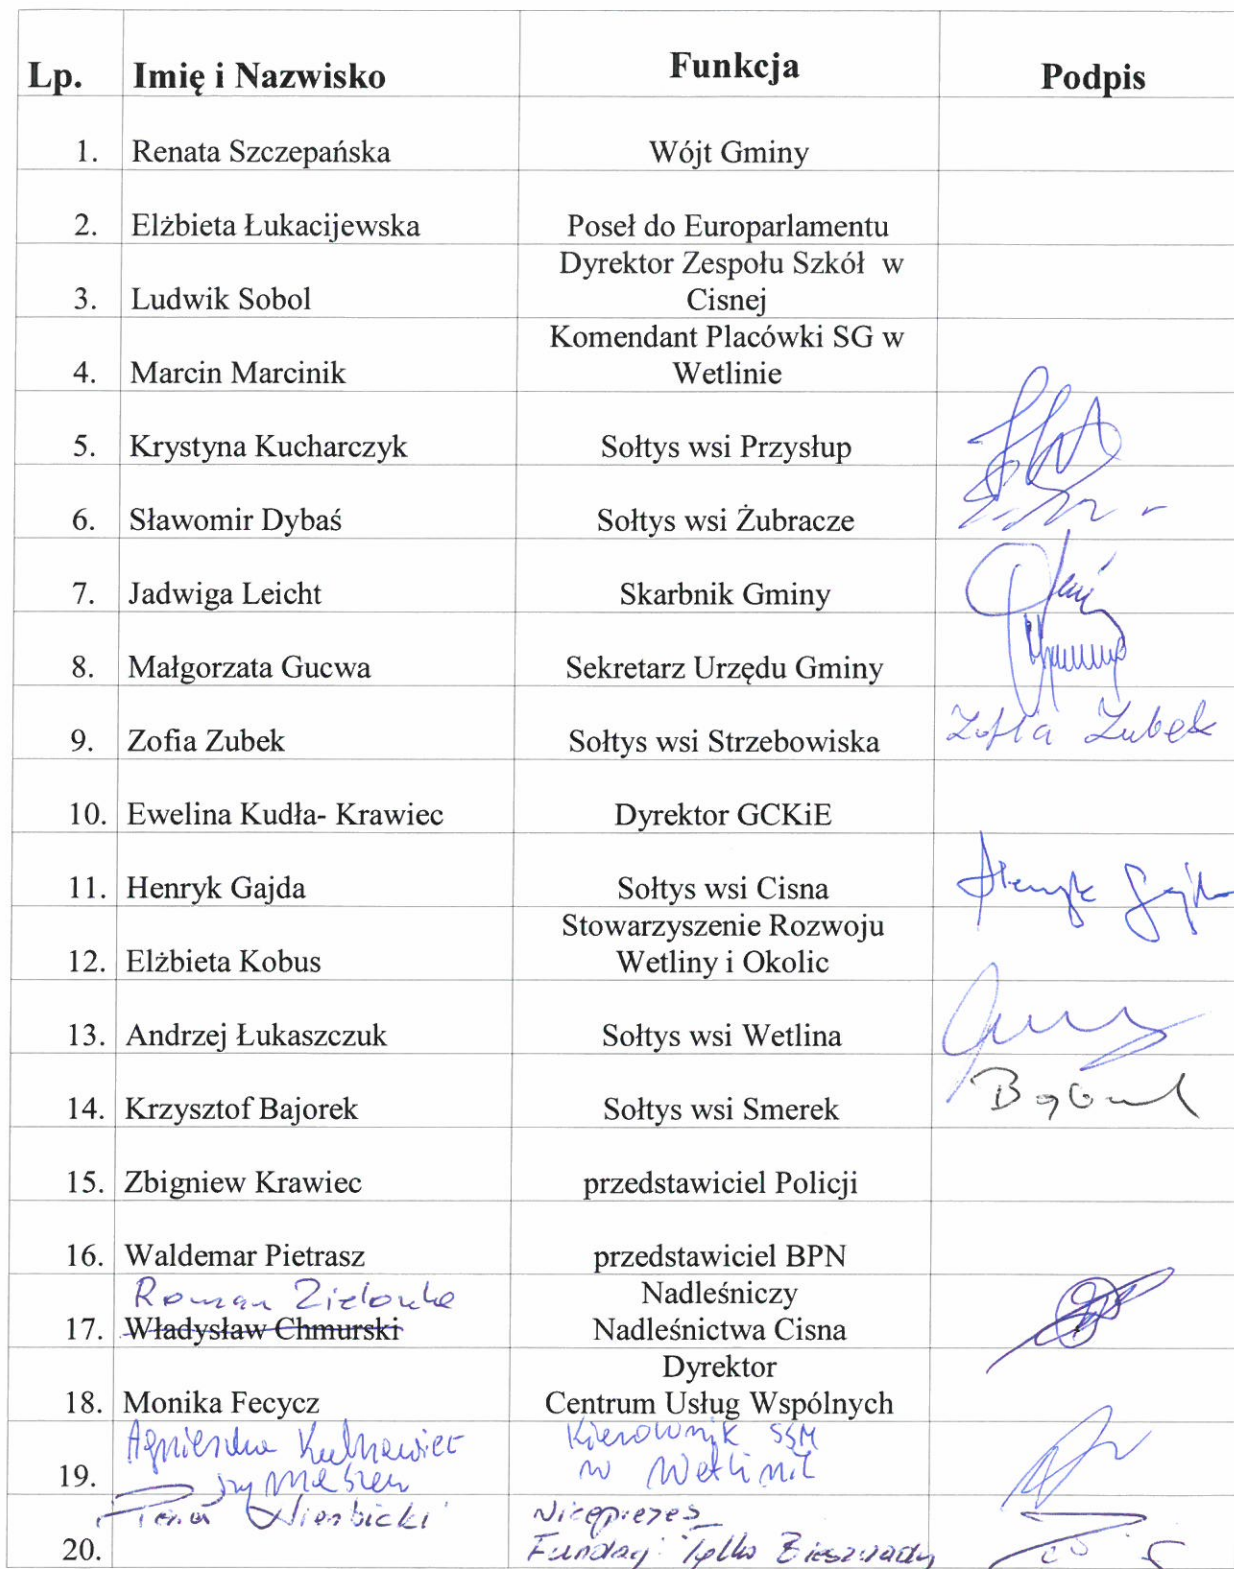 Lp. Imię i Nazwisko Funkcja Podpis
1. Renata Szczepańska Wójt Gminy
2. Elżbieta Łukacijewska Poseł do Europarlamentu
Dyrektor Zespołu Szkół w
3. Ludwik Sobol Cisnej
Komendant Placówki SG w
4. Marcin Marcinik Wetlinie
5. Krystyna Kucharczyk Sołtys wsi Przysłup
6. Sławomir Dybaś Sołtys wsi Żubracze
7. Jadwiga Leicht Skarbnik Gminy
8. Małgorzata Gucwa Sekretarz Urzędu Gminy
9. Zofia Zubek Sołtys wsi Strzebowiska Zofia Zubek
10. Ewelina Kudła- Krawiec Dyrektor GCKiE
11. Henryk Gajda Sołtys wsi Cisna Henryk Gajda
Stowarzyszenie Rozwoju
12. Elżbieta Kobus Wetliny i Okolic
13. Andrzej Łukaszczuk Sołtys wsi Wetlina
14. Krzysztof Bajorek Sołtys wsi Smerek
15. Zbigniew Krawiec przedstawiciel Policji
16. Waldemar Pietrasz przedstawiciel BPN
Roman Zielonka Nadleśniczy
17. Władysław Chmurski Nadleśnictwa Cisna
Dyrektor
18. Monika Fecycz Centrum Usług Wspólnych
Agnieszka Kierownik SSM
19. w Wetlinie
Wiceprezes
20. Fundacji Tylko Bieszczady